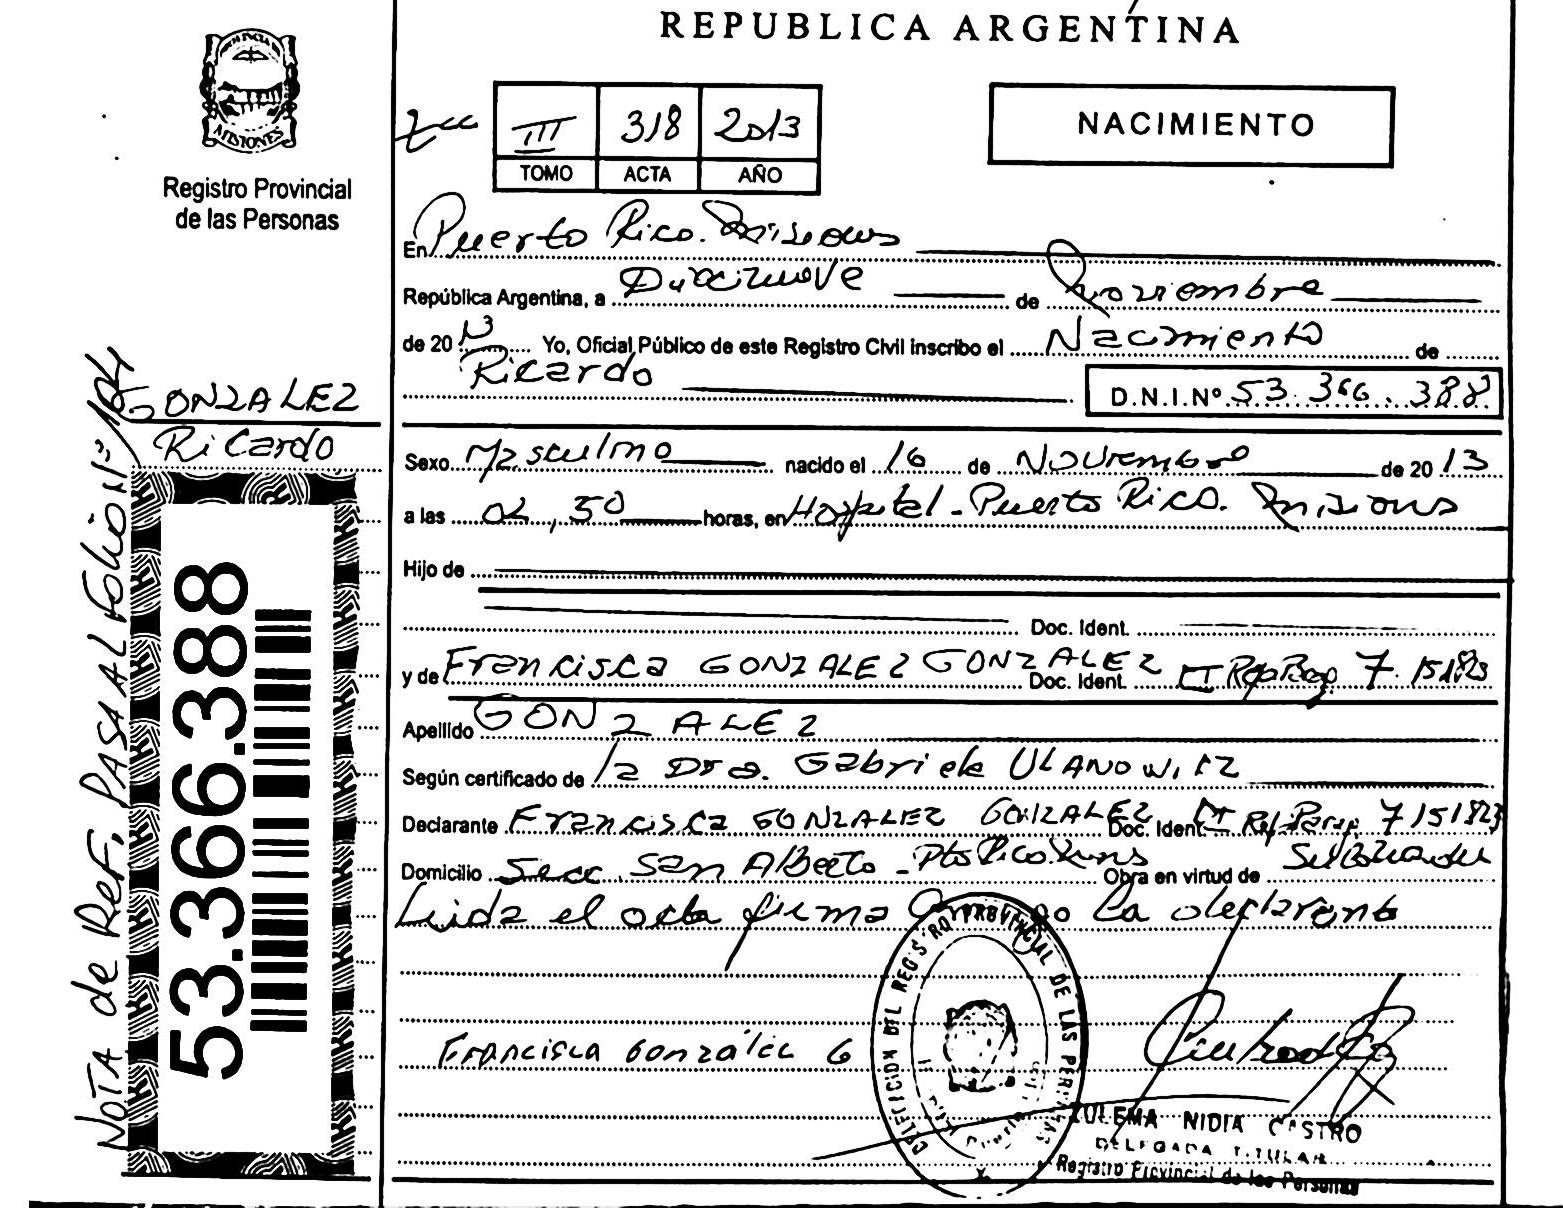 REPUBLICA ARGENTINA
PROVINCIA DE
MISIONES
Registro Provincial
de las Personas
III 318 2013
TOMO ACTA AÑO
NACIMIENTO
En Puerto Rico. Misiones
República Argentina, a Diecinueve de Noviembre
de 20 13 Yo, Oficial Público de este Registro Civil inscribo el Nacimiento de
Ricardo
D.N.I.Nº 53.366.388
GONZALEZ
Ricardo
53.366.388
NOTA de Ref. PASA AL Folio Nº 104
Sexo Masculino nacido el 16 de Noviembre de 20 13
a las 02,50 horas, en Hospital - Puerto Rico. Misiones
Hijo de
Doc. Ident.
y de Francisca GONZALEZ GONZALEZ Doc. Ident. CI Rep Parag 7.151.823
Apellido GONZALEZ
Según certificado de la Dra. Gabriela ULANOWICZ
Declarante Francisca GONZALEZ GONZALEZ Doc. Ident. CI Rep. Parag. 7151823
Domicilio Secc. San Alberto - Pto Rico. Mnes Obra en virtud de
Leida el acta firma la declarante
Francisca Gonzáles G
DELEGACION DEL REGISTRO PROVINCIAL DE LAS PERSONAS
ZULEMA NIDIA CASTRO
DELEGADA TITULAR
Registro Provincial de las Personas